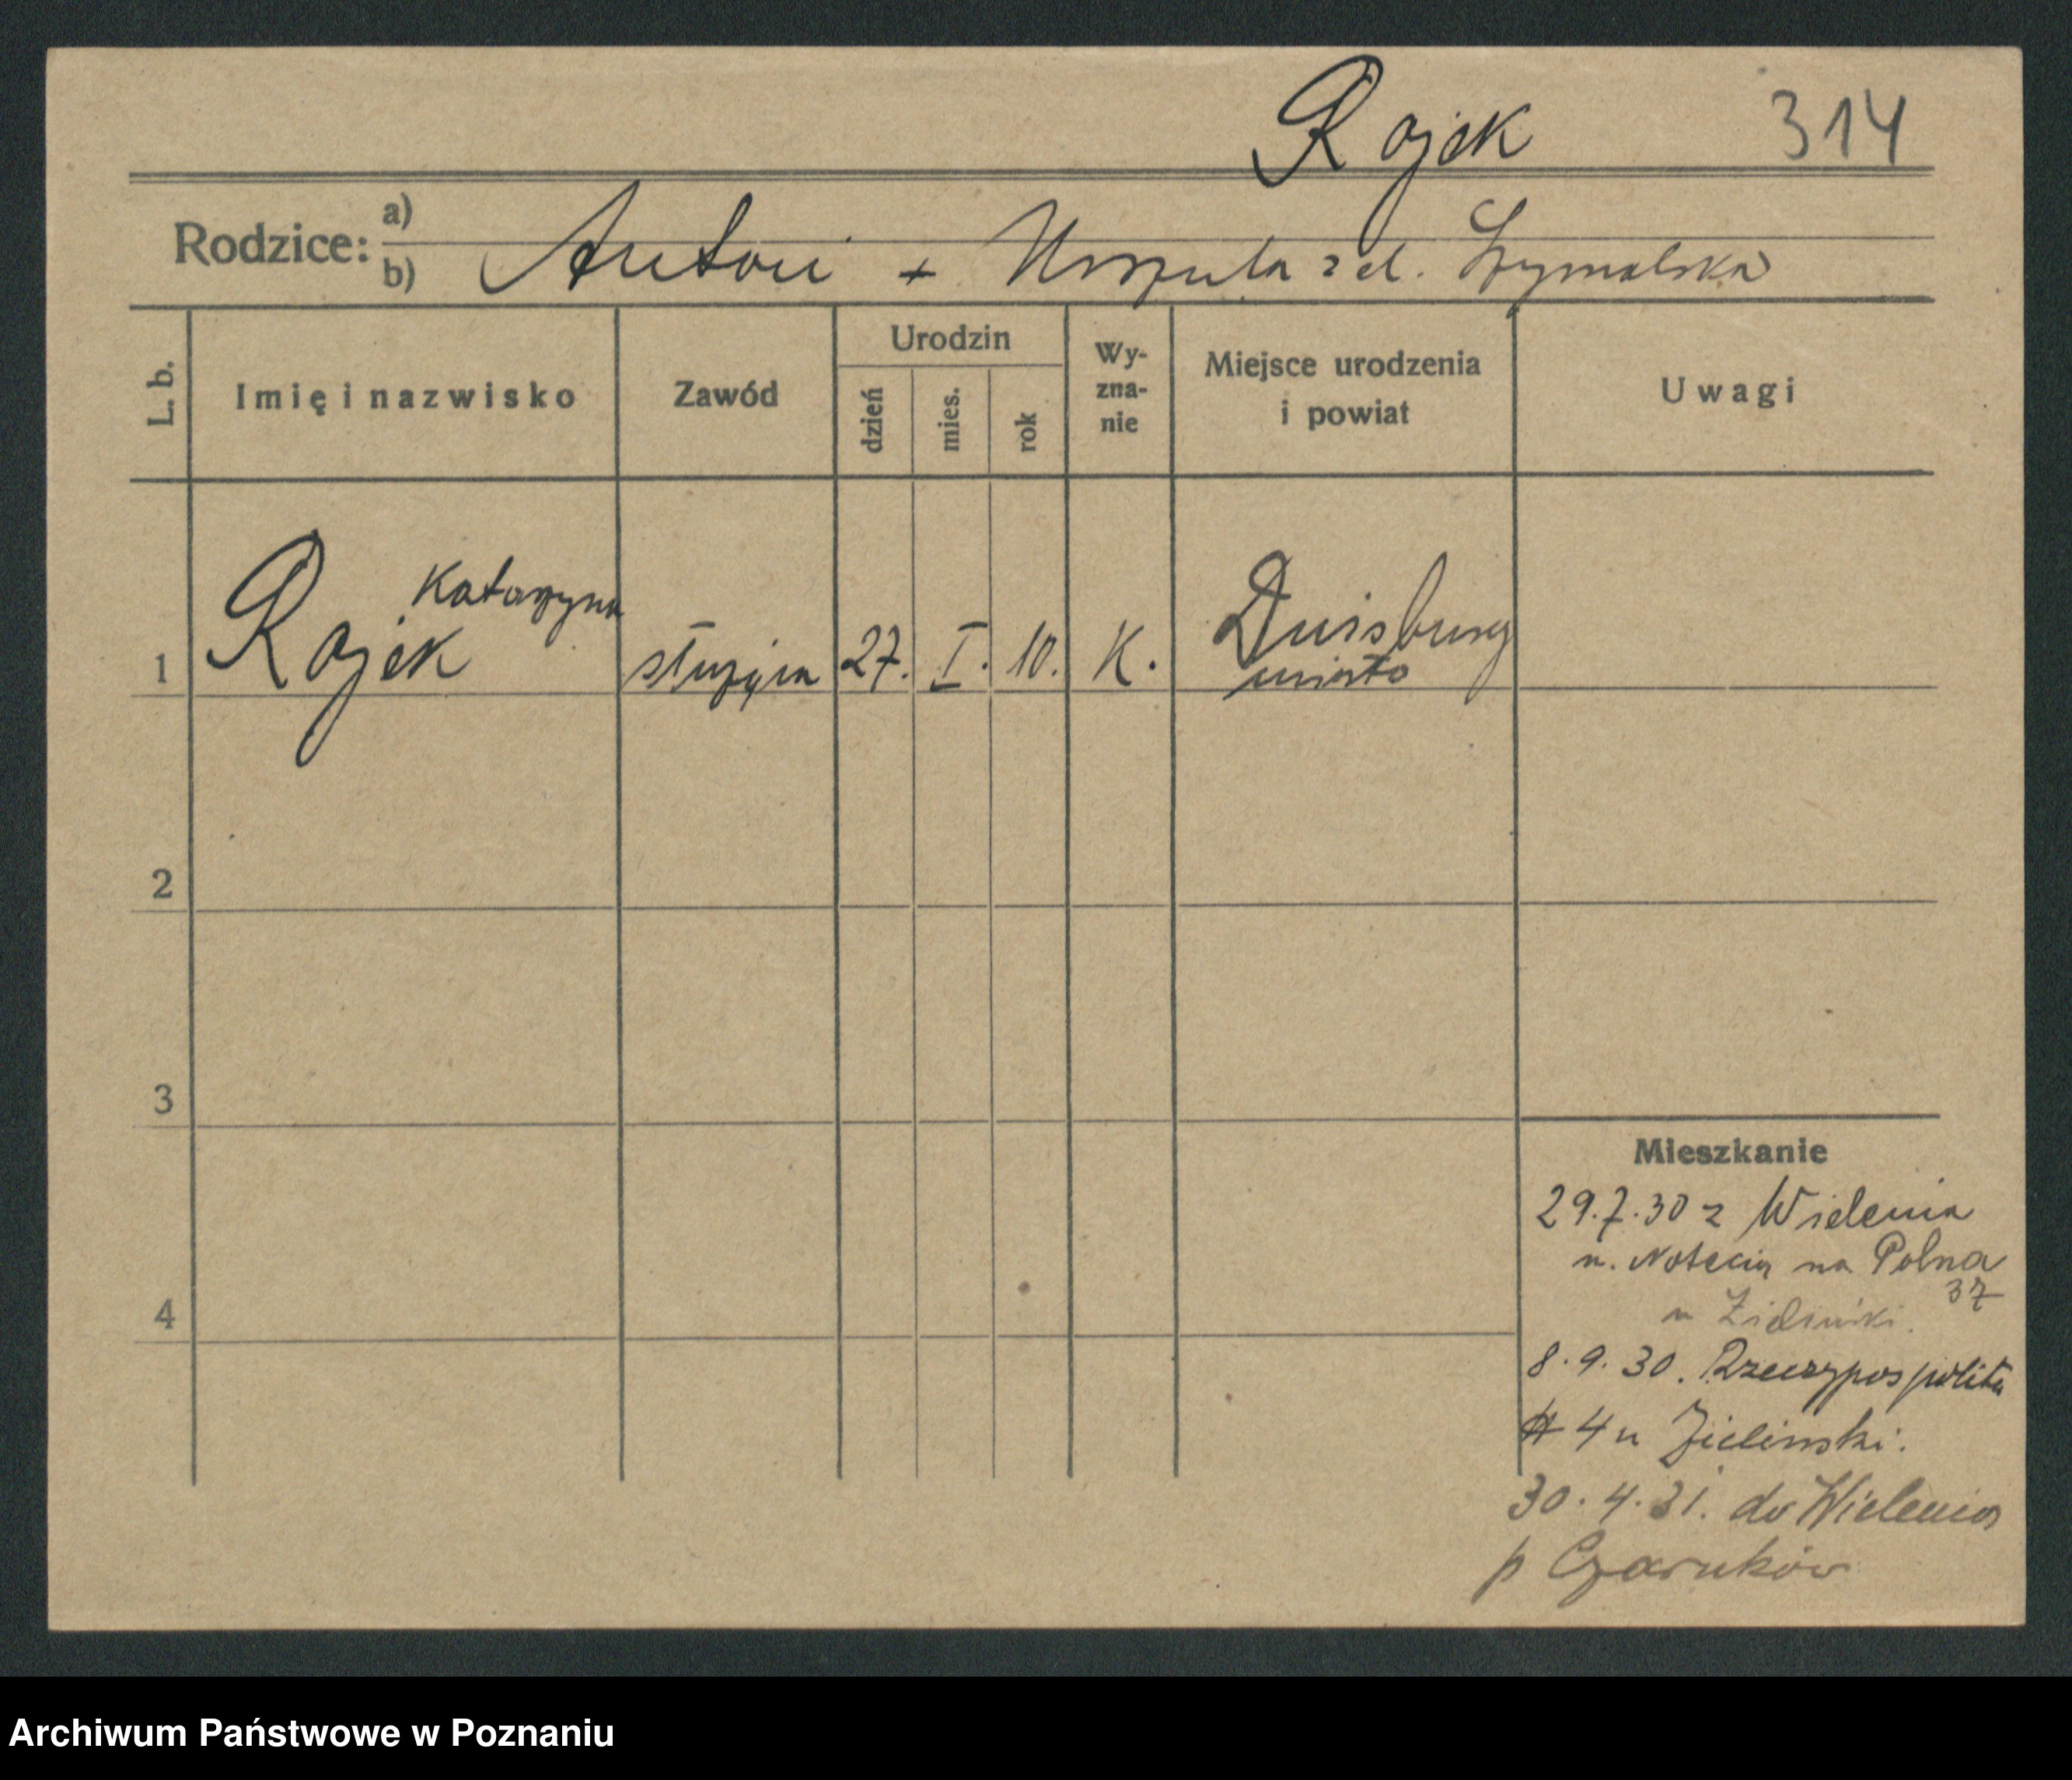 Rojek 314
Rodzice: a)
b) Antoni + Urszula z d.
L. b. Imię i nazwisko Zawód Urodzin dzień mies. rok Wyzna-nie Miejsce urodzenia i powiat Uwagi
Katarzyna
1 Rojek służąca 27. I. 10. K. Duisburg
miasto
2
3
4
Mieszkanie
29.7.30 z Wielenia
n. Notecią na Polna
37
u Zieliński.
8.9.30. Rzeczypospolita
4 u Zielinski.
30.4.31. do Wielenia
p Czarnków
Archiwum Państwowe w Poznaniu